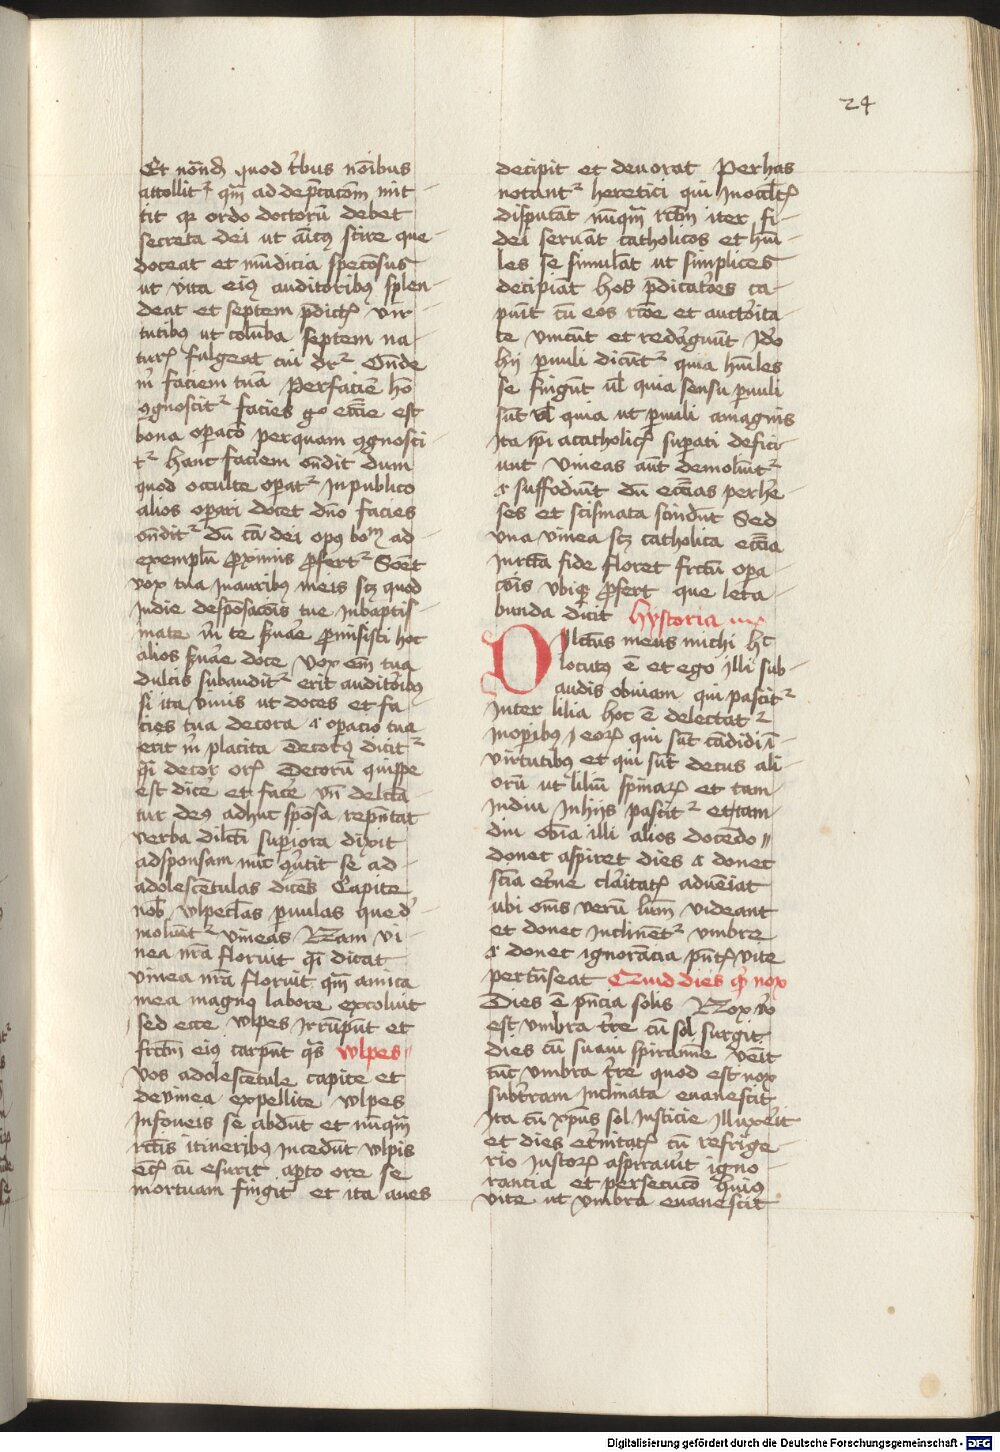 24
Et nōnd quod t̄bus nōibus
attollit᷑ qm̄ ad dep̄catōm mit
tit qr ordo doctorū debet
secreta dei ut aīcꝰ scire que
doceat et mūdicia specōsus
ut vita eiꝰ auditoribꝰ splen
deat et septem p̄dictꝭ vir
tutibꝰ ut colūba septem na
turꝭ fulgeat cui dr᷑ Onde
m̄ faciem tuā Perfaciē hō
ꝯgnoscit᷑ facies gͦ ecc̄ie est
bona op̄acō perquam ꝯgnosci
t᷑ hanc faciem on̄dit dum
quod occulte op̄at᷑ in publico
alios op̄ari docet dn̄o facies
on̄dit᷑ dū cā dei opꝰ boᷠ ad
exemplū ꝓximis ꝓfert᷑ Sōet
vox tua in auribꝰ meis scꝫ quod
in die despōsacōis tue in baptis
mate m̄ te s̄uāe ꝓmisisti hoc
alios s̄uāe doce vox em̄ tua
dulcis subaudit᷑ erit auditōibꝰ
si ita viuis ut doces et fa
cies tua decora ⁊ op̄acio tua
erit m̄ placita Decorꝰ dicit᷑
q̄i decor orꝭ Decorū quippe
est dic̄e et fac̄e vn̄ delc̄ta
tur deꝰ adhuc spōsa rep̄ntat
verba dilc̄ti sup̄iora dixit
ad sponsam nūc ꝯūtit se ad
adolescētulas dicēs Capite
nob̄ wlpecl̄as p̄uulas que de
moliūt᷑ vineas Nam vi
nea nr̄a floruit q̄i dicat
vinea nr̄a floruit qm̄ amica
mea magno labore excoluit
sed ecce wlpes irrūpūt et
frc̄tm eiꝰ carpūt q̄s wlpes
vos adolescētule capite et
de vinea expellite wlpes
in foueis se abdūt et nūqm̄
rc̄tis itineribꝰ incedūt wlpis
ec̄ꝭ cū esurit ap̄to ore se
mortuam fingit et ita aues
decipit et deuorat Per has
notant᷑ heretici qui in occl̄tꝭ
disputāt nūqm̄ rc̄tm iter fi
dei seruāt catholicos et hūi
les se simulāt ut simplices
decipiāt hos p̄dicatōes ca
piūt cū eos rōe et auctōita
te vincūt et redārguūt Idō
hij p̄uuli dicūt᷑ quia hūiles
se fingūt ul̄ quia sensu p̄uuli
sūt ul̄ quia ut p̄uuli a magnis
ita ip̄i a catholicꝭ sup̄ati defici
unt vineas aūt demoliūt᷑
⁊ suffodiūt dū ecc̄ias per he
ses et scismata scindūt Sed
vna vinea scꝫ catholica ecc̄ia
in rc̄ta fide floret frc̄tū op̄a
cōis vbiqꝫ ꝓfert que leta
bunda dicit Hystoria
Dilc̄tus meus michi hͨ
locutꝰ ē et ego illi sub
audis obuiam qui pascit᷑
inter lilia hoc ē delectat᷑
in op̄ibꝰ eorꝭ qui sūt cādidi ī
virtutibꝰ et qui sūt decus ali
orū ut liliū spinarꝭ et tam
in diu in hijs pascit᷑ et tam
diu obuiā illi alios docēdo
donec aspiret dies ⁊ donec
scīa et̄ne clāitatꝭ adueīat
ubi om̄s verū lum̄ videant
et donec inclinēt᷑ vmbre
⁊ donec ignorācia pn̄tꝭ vite
pert̄nseat Quid dies qd nox
Dies ē p̄ncia solis Nox v̄o
est vmbra t̄re cū sol surgit
dies cū suaui spiramīe venit
tūc vmbra t̄re quod est nox
subt̄ram inclinata euanescit
ita cū xp̄us sol iusticie illuxerit
et dies et̄nitatꝭ cū refrige
rio iustorꝭ aspirauit igno
rantia et persecucō huiꝰ
vite ut vmbra euanescit
Digitalisierung gefördert durch die Deutsche Forschungsgemeinschaft - DFG